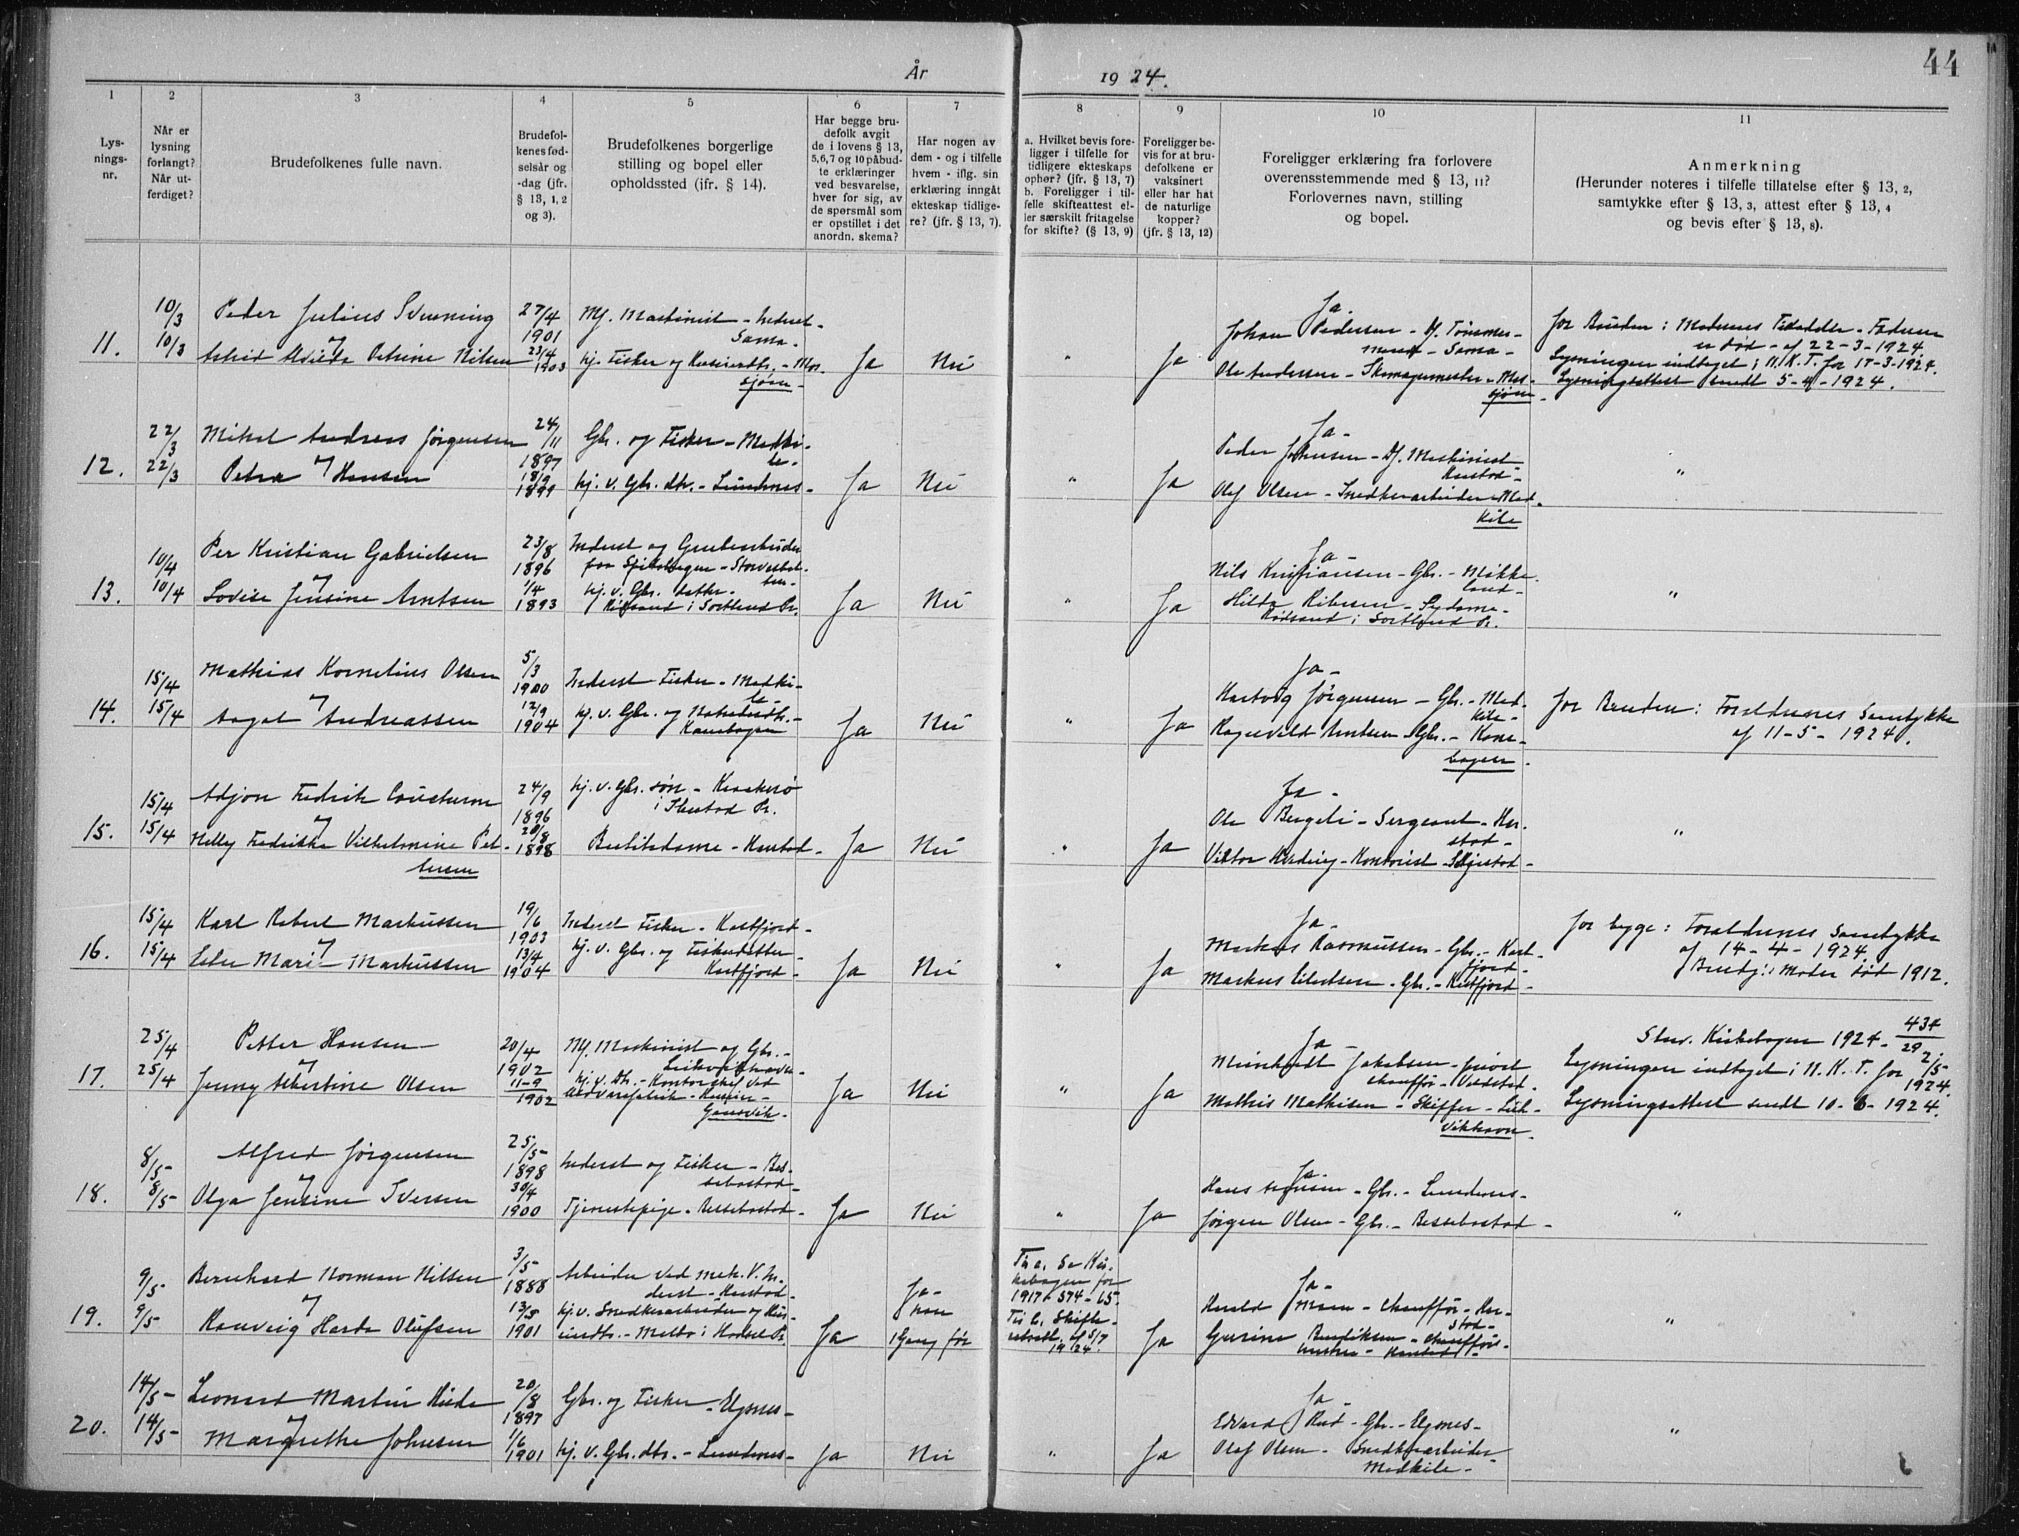 År 1924.
44
1 2 3 4 5 6 7 8 9 10 11
Lys-
nings-
nr.
Når er
lysning
forlangt?
Når ut-
ferdiget?
Brudefolkenes fulle navn.
Brudefol-
kenes fød-
selsår og
-dag (jfr.
§ 13, 1, 2
og 3).
Brudefolkenes borgerlige
stilling og bopel eller
opholdssted (jfr. § 14).
Har begge bru-
defolk avgit
de i lovens § 13,
5,6,7 og 10 påbud-
te erklæringer
ved besvarelse,
hver for sig, av
de spørsmål som
er opstillet i det
anordn. skema?
Har nogen av
dem - og i tilfelle
hvem - iflg. sin
erklæring inngått
ekteskap tidlige-
re? (jfr. § 13, 7).
a. Hvilket bevis fore-
ligger i tilfelle for
tidligere ekteskaps
ophør? (jfr. § 13, 7)
b. Foreligger i til-
felle skifteattest el-
ler særskilt fritagelse
for skifte? (§ 13, 9)
Foreligger be-
vis for at bru-
defolkene er
vaksinert
eller har hat
de naturlige
kopper?
(jfr. § 13, 12)
Foreligger erklæring fra forlovere
overensstemmende med § 13, 11?
Forlovernes navn, stilling
og bopel.
Anmerkning
(Herunder noteres i tilfelle tillatelse efter § 13, 2,
samtykke efter § 13, 3, attest efter § 13, 4
og bevis efter § 13, 8).
11.
10/3
10/3
Peder Julius Svenning
Petrine Nilsen
27/4
1901
23/4
1903
Mf. Maskinist - Inderst -
Sama -
hj. Fisker og
sjøen -
Ja
Nei
"
Ja
Ja -
Johan Pedersen - Df. Tømmer-
mand - Sama -
Ole Andersen - Skomagermester - Mos-
sjøen -
for Bruden: Moderens Tilladelse - Faderen
er død - af 22-3-1924.
Lysningen indtaget i N.K.T. for 17-3-1924.
Lysningsattest sendt 5-4-1924.
12.
22/3
22/3
Mikal Andreas Jørgensen
Petra Hansen
24/11
1897
18/9
1899
Gbr. og Fisker - Medki-
le -
hj. v. Gbr. dtr. - Lundenes -
Ja
Nei
"
Ja
Ja -
Peder Johnsen - Df. Maskinist
Harstad -
Olaf Olsen - Snedkerarbeider - Med-
kile
"
13.
10/4
10/4
Per Kristian Gabrielsen
Lovise Jensine Arntsen
23/8
1896
1/4
1893
Inderst og Grubearbeider
paa Spitsbergen -
hj. v. Gbr. datter -
i Sortland Pr.
Ja
Nei
"
Ja
Ja -
Nils Kristiansen - Gbr. - Mikke
land -
Hilda - Sydame -
i Sortland Pr.
"
14.
15/4
15/4
Mathias Kornelius Olsen
Aagot Andreassen
5/3
1900
12/9
1904
Inderst Fisker - Medki-
le -
hj. v. Gbr. og
Kanebogen
Ja
Nei
"
Ja
Ja -
Hartvig Jørgensen - Gbr. - Med-
kile -
Ragnvald Arntsen - Gbr. - Kane-
bogen.
for Bruden: Foraldrenes Samtykke
af 11-5-1924.
15.
15/4
15/4
Adjon Fredrik
Nelly Fredrikke Vilhelmine Pet-
tersen
24/9
1896
20/8
1898
hj. v. Gbr. søn -
i Ibestad Pr.
Butikdame - Harstad -
Ja
Nei
"
Ja
Ja -
Ole Bergeli - Sergeant - Har-
stad -
Viktor - Kontorist -
"
16.
15/4
15/4
Karl Robert Markussen
Mari Markussen
19/6
1903
13/4
1904
Inderst Fisker - Kastfjord -
hj. v. Gbr. og Fiskerdatter -
Kastfjord -
Ja
Nei
"
Ja
Ja -
Markus Rasmussen - Gbr. - Kast-
fjord -
Markus - Gbr. - Kastfjord -
for begge: Foraldrenes Samtykke
af 14-4-1924.
Brudgs. Moder død 1912.
17.
25/4
25/4
Petter Hansen -
Jenny Albertine Olsen
20/4
1902
11-9
1902
Mf. Maskinist og Gbr. -
hj. v. Dtr. -
Gansvik -
Ja
Nei
"
Ja
Ja
Meinhardt Jakobsen - privat
chauffør -
Mathis Mathisen - Skipper -
Kirkebogen 1924 - 434/29.
Lysningen indtaget i N.K.T. for 2/5-
1924.
Lysningsattest sendt 10-6-1924.
18.
8/5-
8/5-
Alfred Jørgensen
Olga Jensine Iversen
25/5-
1898
30/4
1900
Inderst og Fisker - Bes-
sebostad -
Tjenestepige - Bessebostad -
Ja
Nei
"
Ja
Ja -
Hans - Gbr. - Lundenes -
Jørgen Olsen - Gbr. - Bessebostad -
"
19.
9/5-
9/5-
Bernhard Norman Nilsen
Ranveig Harda Olufsen
3/5-
1888
13/3
1901
Arbeider ved mek. V. In-
derst - Harstad -
hj. v. Snedkerarbeider og
- Melbo i Hadsel Pr.
Ja
Ja -
han
1 Gang før
Til a. Se Kir-
kebogen for
1917 - 574 - 65.
Til b. Skifte-
attest. af 5/7
1924.
Ja
Ja -
Harald Moen - Chauffør - Har-
stad -
Gurine Bendiksen - Chauffør-
hustru - Harstad -
"
20.
14/5-
14/5-
Leonard Martin
Margrethe Johnsen
20/8
1897
1/6
1901
Gbr. og Fisker - Elgsnes -
hj. v. Gbr. dtr. - Lundenes -
Ja
Nei
"
Ja
Ja -
Edvard - Gbr. - Elgsnes -
Olaf Olsen - Snedkerarbeider
Medkile -
"